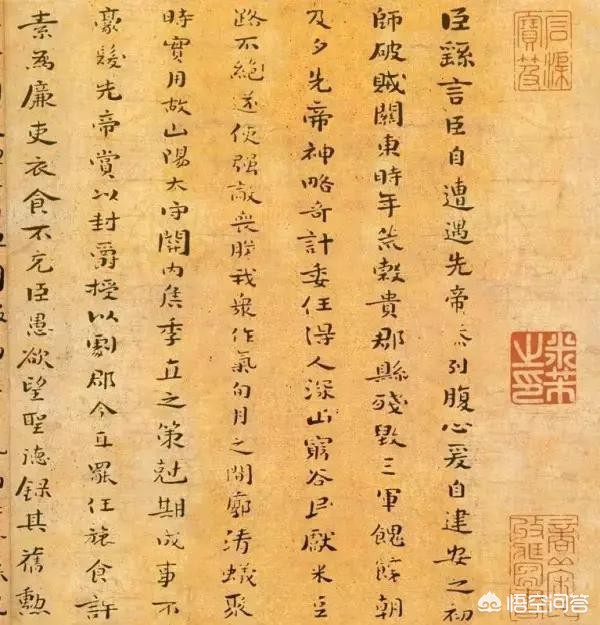 臣繇言臣自遭遇先帝忝列腹心爰自建安之初
師破賊關東時年荒穀貴郡縣殘毀三軍餽饟朝
及夕先帝神略奇計委任得人深山窮谷民獻米豆
路不絕遂使强敵喪膽我衆作氣旬月之間廓清蟻聚
時實用故山陽太守關內侯季直之策尅期成事不
豪髮先帝賞以封爵授以劇郡今直罷任旅食許
素為廉吏衣食不充臣愚欲望聖德錄其舊勳
米芾之印
悟空问答